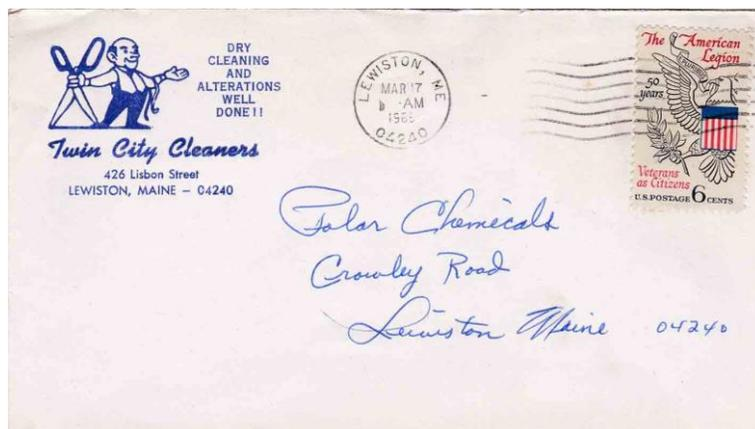 DRY
CLEANING
AND
ALTERATIONS
WELL
DONE!!
Twin City Cleaners
426 Lisbon Street
LEWISTON, MAINE – 04240
LEWISTON, ME
MAR 17
AM
04240
The American
Legion
50
years
Veterans
as Citizens
U.S. POSTAGE 6 CENTS
Polar Chemicals
Crowley Road
Lewiston Maine 04240